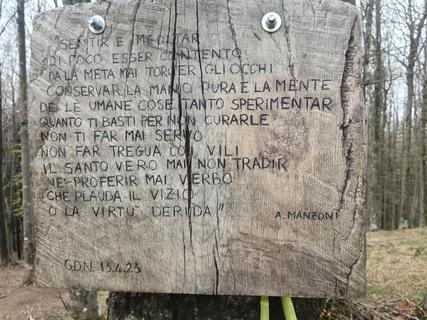 "SENTIR E MEDITAR
DI POCO ESSER CONTENTO
DA LA META MAI TORCER GLI OCCHI
CONSERVAR LA MANO PURA E LA MENTE
DE LE UMANE COSE TANTO SPERIMENTAR
QUANTO TI BASTI PER NON CURARLE
NON TI FAR MAI SERVO
NON FAR TREGUA COI VILI
IL SANTO VERO MAI NON TRADIR
NE' PROFERIR MAI VERBO
CHE PLAUDA IL VIZIO
O LA VIRTU' DERIDA"
A. MANZONI
G.D.N. 13.4.23